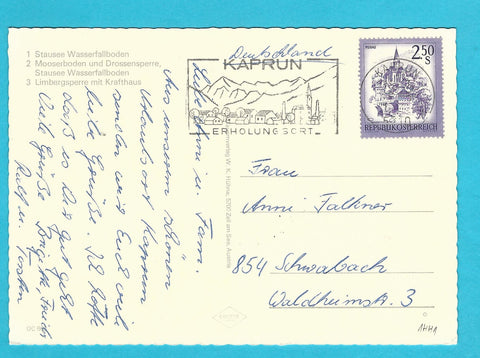 1 Stausee Wasserfallboden
2 Mooserboden und Drossensperre,
Stausee Wasserfallboden
3 Limbergsperre mit Krafthaus
Deutschland
KAPRUN
ERHOLUNGSORT
MURAU
2.50
S
REPUBLIK ÖSTERREICH
Liebe Anni u. Fam.
Aus unserem schönen
Urlaubsort Kaprun
senden wir Euch viele
liebe Grüße. Ich hoffe
daß es Dir gut geht
Viele Grüße Brigitte,
Ralf u. Torsten
W. K. Hühne, 5700 Zell am See, Austria
Frau
Anni Falkner
854 Schwabach
Waldheimstr. 3